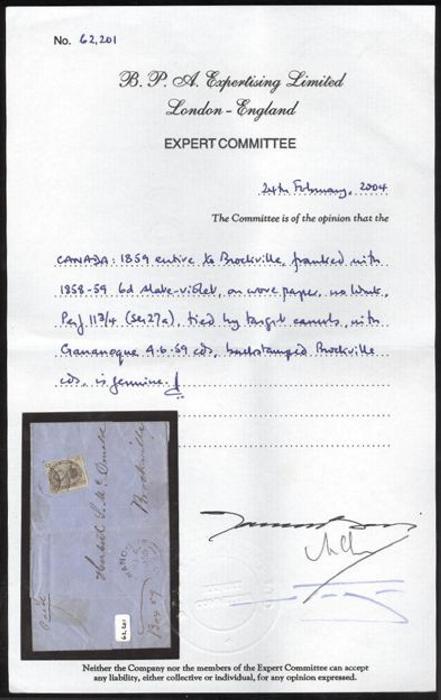 No. 62,201
B. P. A. Expertising Limited
London - England
EXPERT COMMITTEE
24th February, 2004
The Committee is of the opinion that the
CANADA: 1859 entire to Brockville, franked with
1858-59 6d slate-violet, on wove paper, no wmk,
Perf 11 3/4 (SG 27a), tied by target cancels, with
Gananoque 4.6.59 cds, backstamped Brockville
cds, is genuine.
Herbert S. Mc
Brockville
Paid
Box 59
62,201
Neither the Company nor the members of the Expert Committee can accept
any liability, either collective or individual, for any opinion expressed.